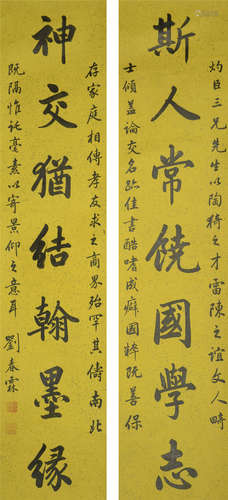 灼臣三兄先生以陶猗之才雷陳之誼文人疇
斯人常饒國學志
士傾蓋論交名跡佳書酷嗜成癖國粹既善保
存家庭相傳孝友求之商界殆罕其儔南北
神交猶結翰墨緣
既隔惟託毫素以寄景仰之意耳 劉春霖